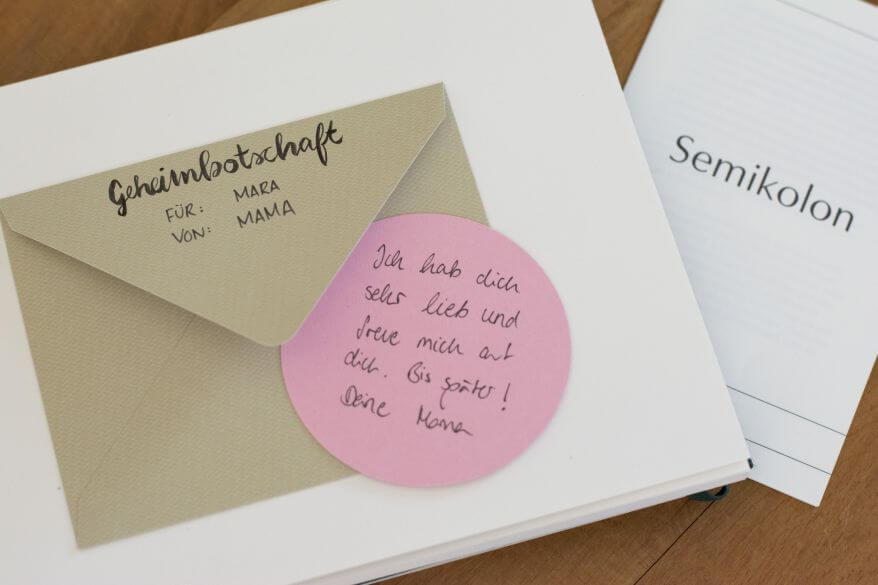 Geheimbotschaft
FÜR: MARA
VON: MAMA
Ich hab dich
sehr lieb und
freue mich auf
dich. Bis später!
Deine Mama
Semikolon